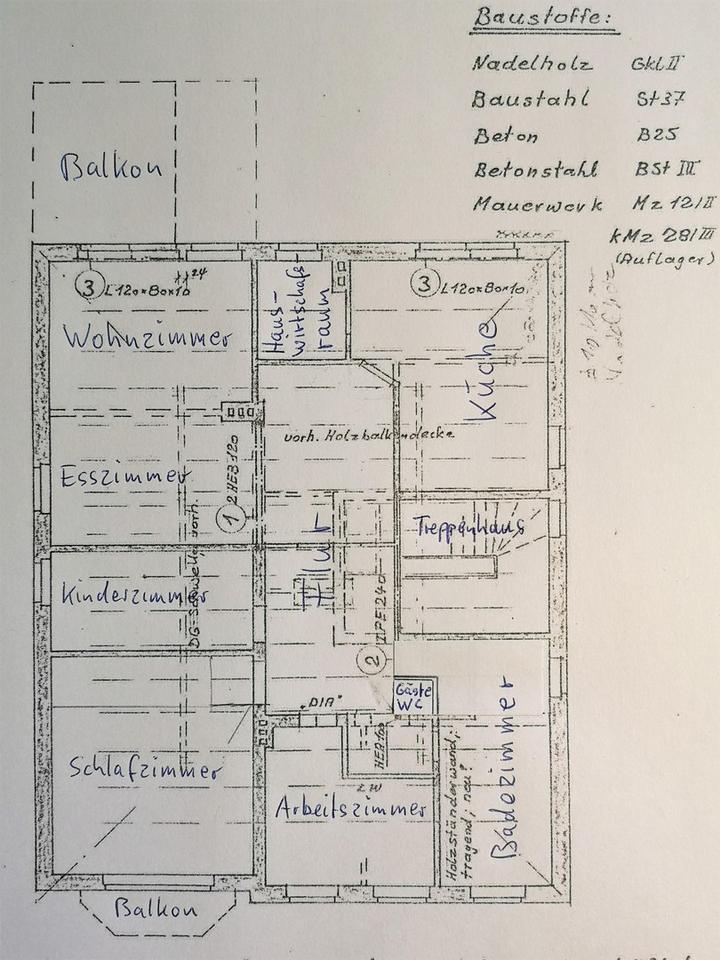 Baustoffe:
Nadelholz GklII
Baustahl St37
Beton B25
Betonstahl BSt III
Mauerwerk Mz 12/II
kMz 28/III
(Auflager)
Balkon
3 L120x80x10
24
Haus-
wirtschafts-
raum
3 L120x80x10
Wohnzimmer
Küche
vorh. Holzbalkendecke
Esszimmer
1 2HEB120
Treppenhaus
Flur
Kinderzimmer
DG-Schwelle vorh.
2 IPE 240
Gäste
WC
"DIA"
HEA100
Schlafzimmer
Arbeitszimmer
Holzständerwand;
tragend; neu?
Badezimmer
Balkon